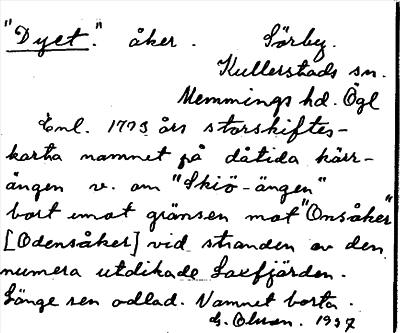 "Dyet." åker. Sörby.
Kullerstads sn.
Memmings hd. Ögl
Enl. 1773 års storskiftes-
karta namnet på dåtida kärr-
ängen v. om "Skiö-ängen"
bort emot gränsen mot "Onsåker"
[Odensåker] vid stranden av den
numera utdikade Laxfjärden.
Länge sen odlad. Namnet borta.
G. Olsson. 1937